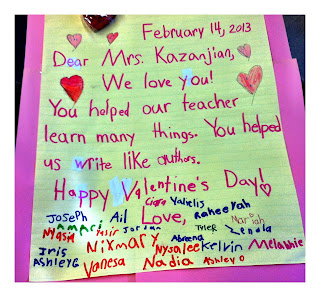 February 14, 2013
Dear Mrs. Kazanjian,
We love you!
You helped our teacher
learn many things. You helped
us write like authors.
Happy Valentine's Day!
Ciara Yahelis
Joseph Ail Love, Raheeyah
Amari Amir Jordan Tyler Mariah
Nyasia Nixmary Abreena Zenola
Iris Nysalee Kelvin Melannie
Ashley G Vanesa Nadia Ashley O